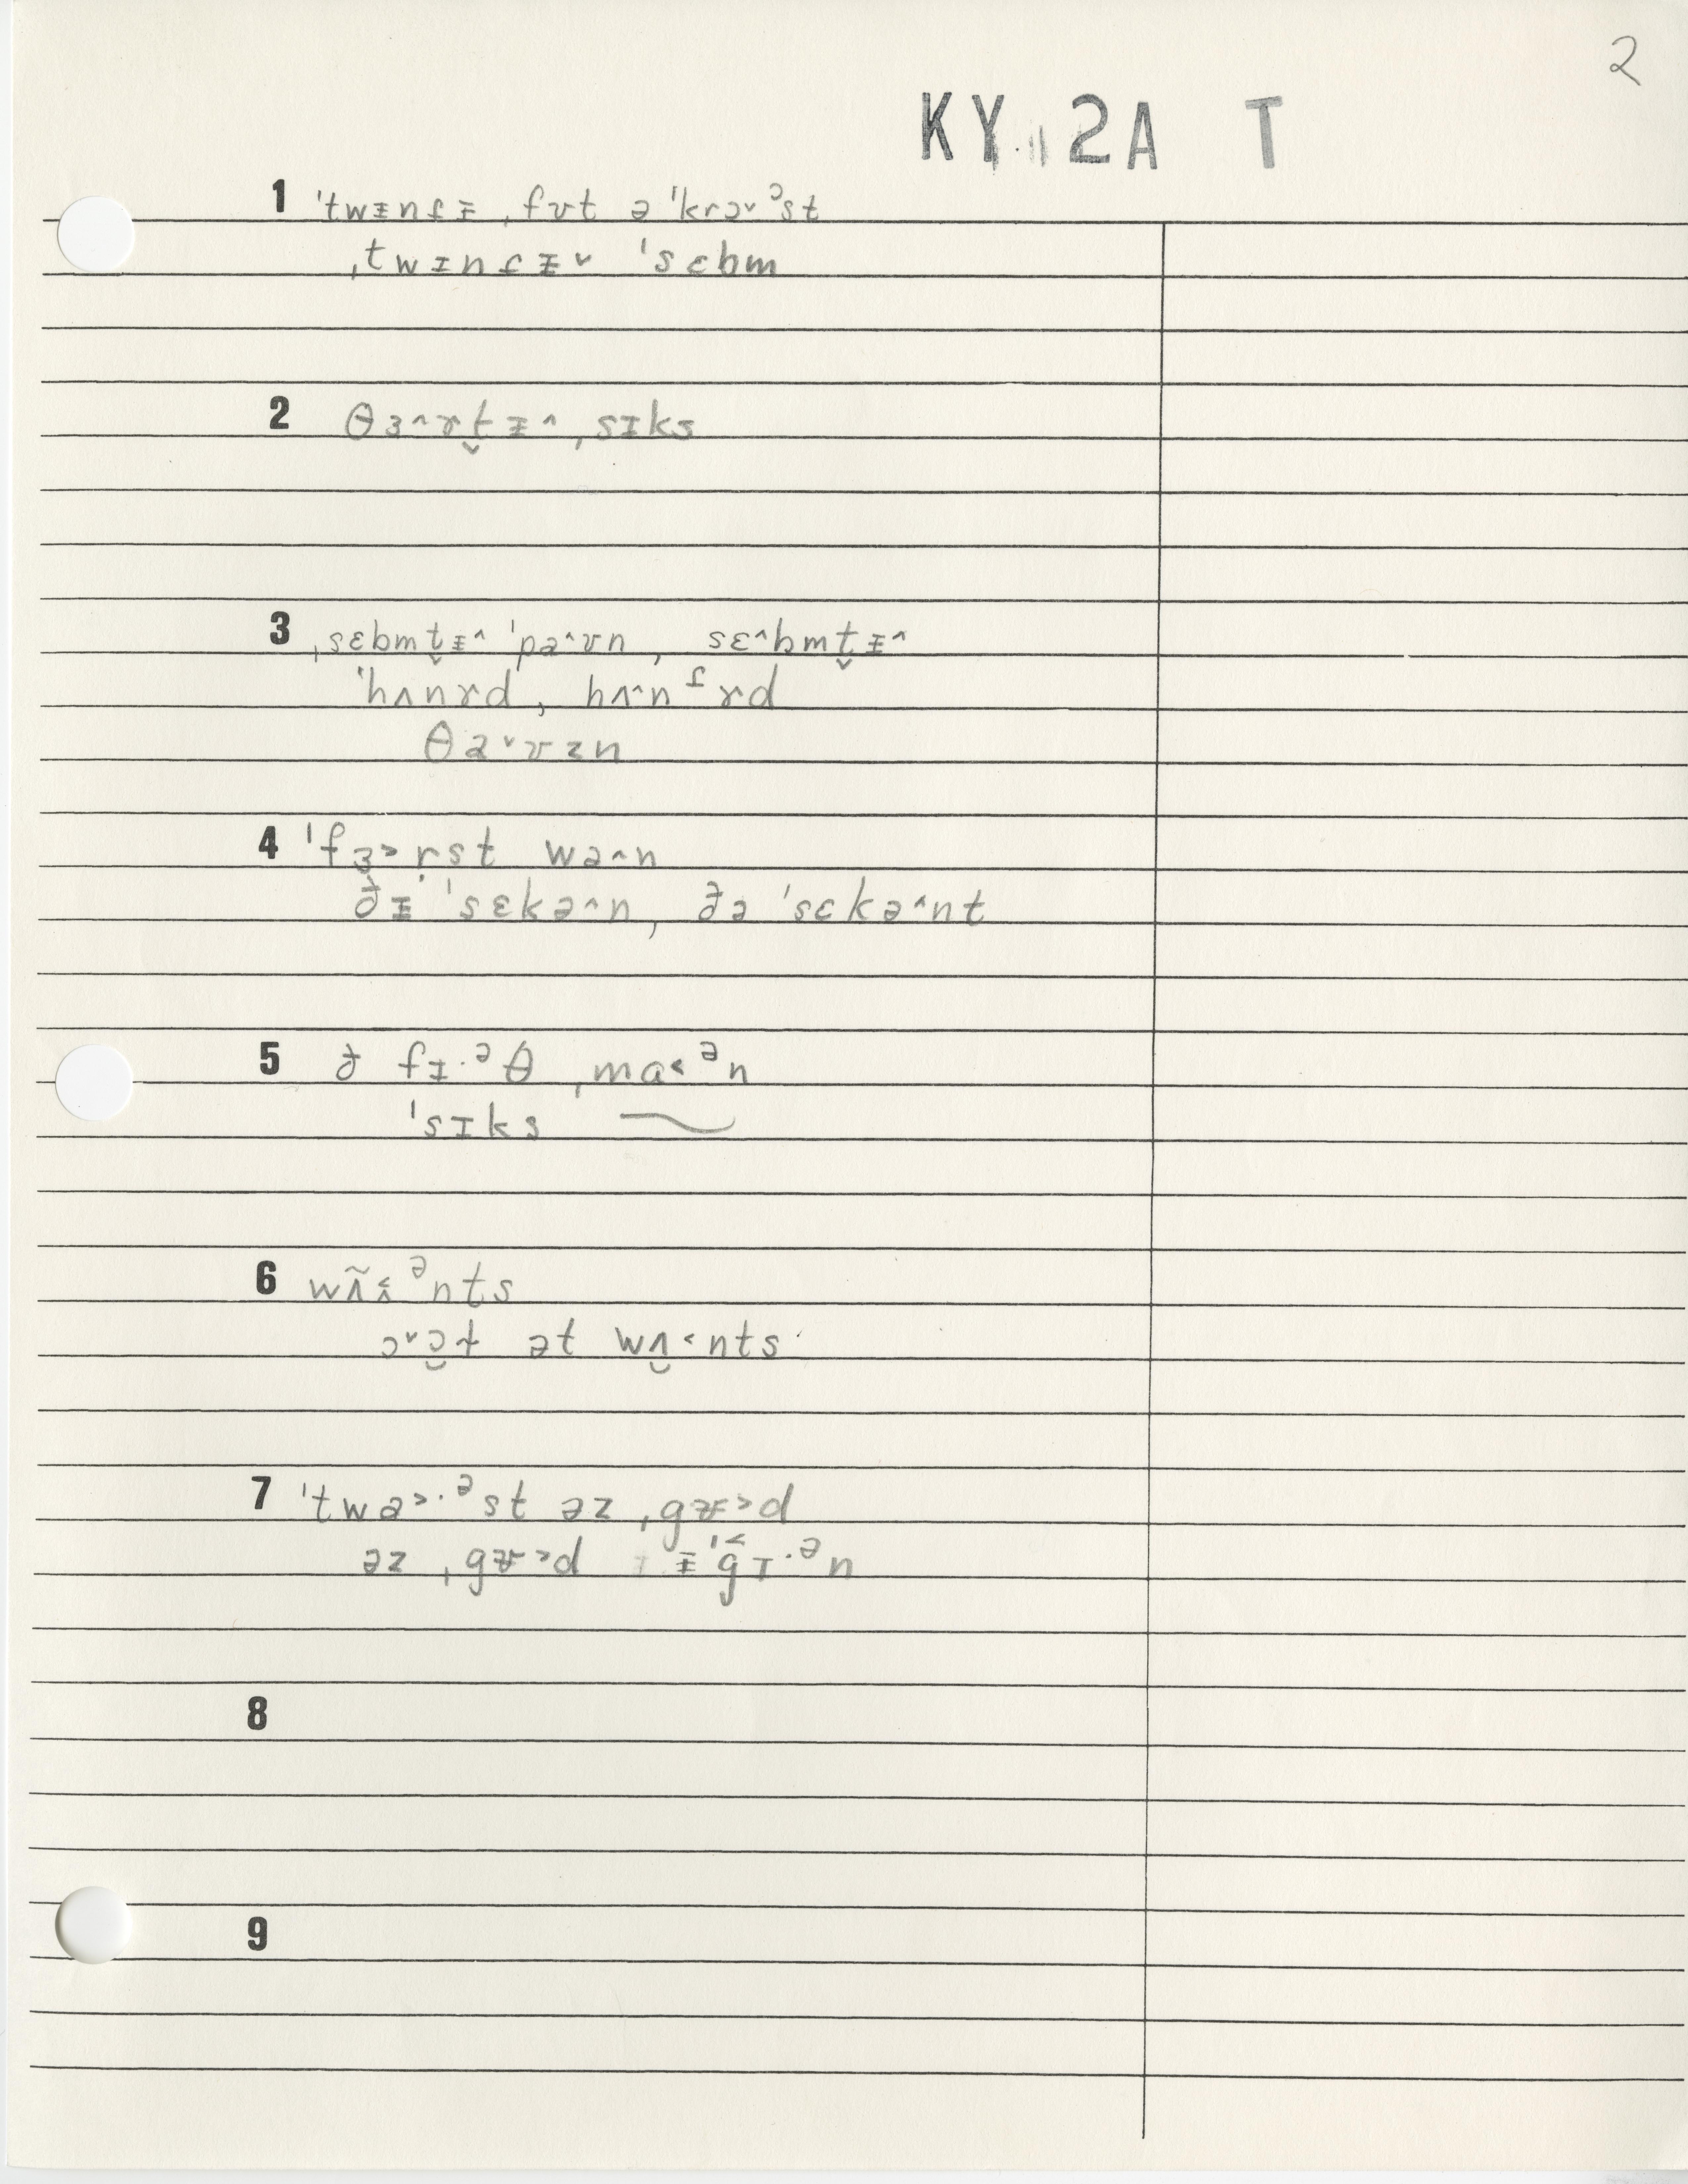 2
KY 2A T
1 ˈtwɪ̵nɾɪ̵ ˌfʊt ə ˈkrɔ˅ᵓst
ˌtwɪ̵nɾɪ̵˅ ˈsɛbm
2 θɜ˄ɤt̬ɪ̵˄ ˌsɪks
3 ˌsɛbmt̬ɪ̵˄ ˈpa˄ʊn, sɛ˄bmt̬ɪ̵˄
ˈhʌnɤd, hʌ˄nᶴɤd
θa˅ʊzn
4 ˈfɜ˃rst wə˄n
ðɪ̵ ˈsɛkə˄n, ðə ˈsɛkə˄nt
5 ð fɪ̵·ᵊθ ˌmɑ˂ᵊn
ˈsɪks
6 wʌ̃˂̭ᵊnts
ɔ˅ɔ̮t ət wʌ̮˂nts
7 ˈtwa˃·ᵊst əz ˌgʊ̵˃d
əz ˌgʊ̵˃d ɪ̵ˈg̬ɪ·ᵊn
8
9